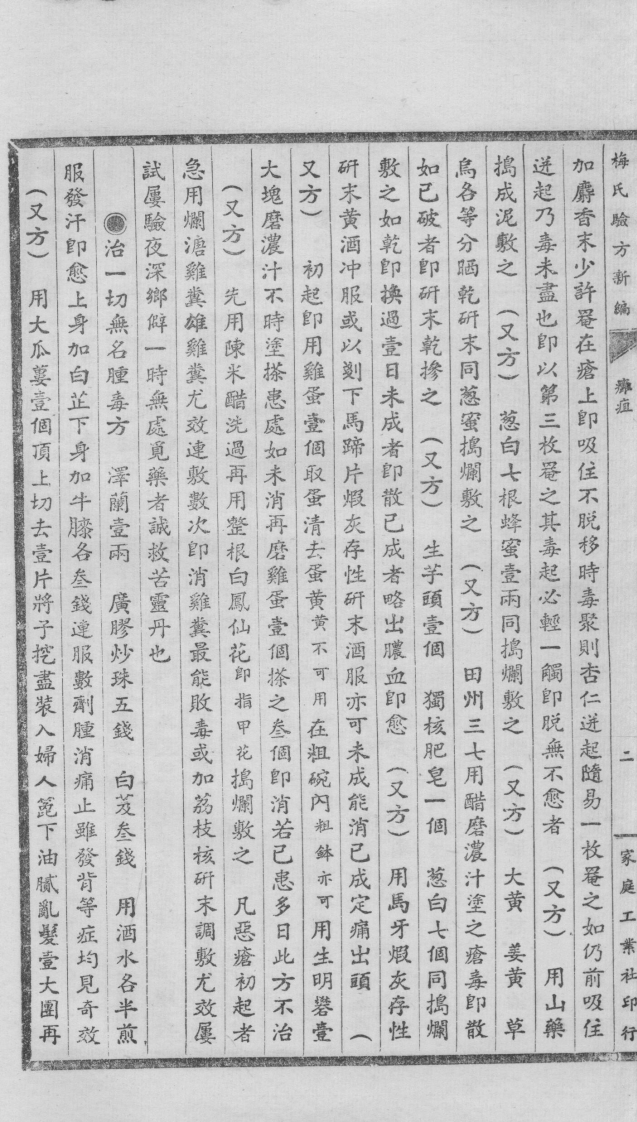 梅氏驗方新編 癰疽 二 家庭工業社印行
加麝香末少許罨在瘡上卽吸住不脫移時毒聚則杏仁迸起隨易一枚罨之如仍前吸住
迸起乃毒未盡也卽以第三枚罨之其毒起必輕一觸卽脫無不愈者 (又方) 用山藥
搗成泥敷之 (又方) 葱白七根蜂蜜壹兩同搗爛敷之 (又方) 大黃 姜黃 草
烏各等分晒乾硏末同葱蜜搗爛敷之 (又方) 田州三七用醋磨濃汁塗之瘡毒卽散
如已破者卽硏末乾摻之 (又方) 生芋頭壹個 獨核肥皂一個 葱白七個同搗爛
敷之如乾卽換過壹日未成者卽散已成者略出膿血卽愈 (又方) 用馬牙煆灰存性
硏末黃酒冲服或以剗下馬蹄片煆灰存性硏末酒服亦可未成能消已成定痛出頭 (
又方) 初起卽用雞蛋壹個取蛋清去蛋黃黃不可用在粗碗內粗鉢亦可用生明礬壹
大塊磨濃汁不時塗搽患處如未消再磨雞蛋壹個搽之叁個卽消若已患多日此方不治
(又方) 先用陳米醋洗過再用整根白鳳仙花卽指甲花搗爛敷之 凡惡瘡初起者
急用爛溏雞糞雄雞糞尤效連敷數次卽消雞糞最能敗毒或加荔枝核硏末調敷尤效屢
試屢驗夜深鄉僻一時無處覓藥者誠救苦靈丹也
●治一切無名腫毒方 澤蘭壹兩 廣膠炒珠五錢 白芨叁錢 用酒水各半煎
服發汗卽愈上身加白芷下身加牛膝各叁錢連服數劑腫消痛止雖發背等症均見奇效
(又方) 用大瓜蔞壹個頂上切去壹片將子挖盡裝入婦人篦下油膩亂髮壹大團再